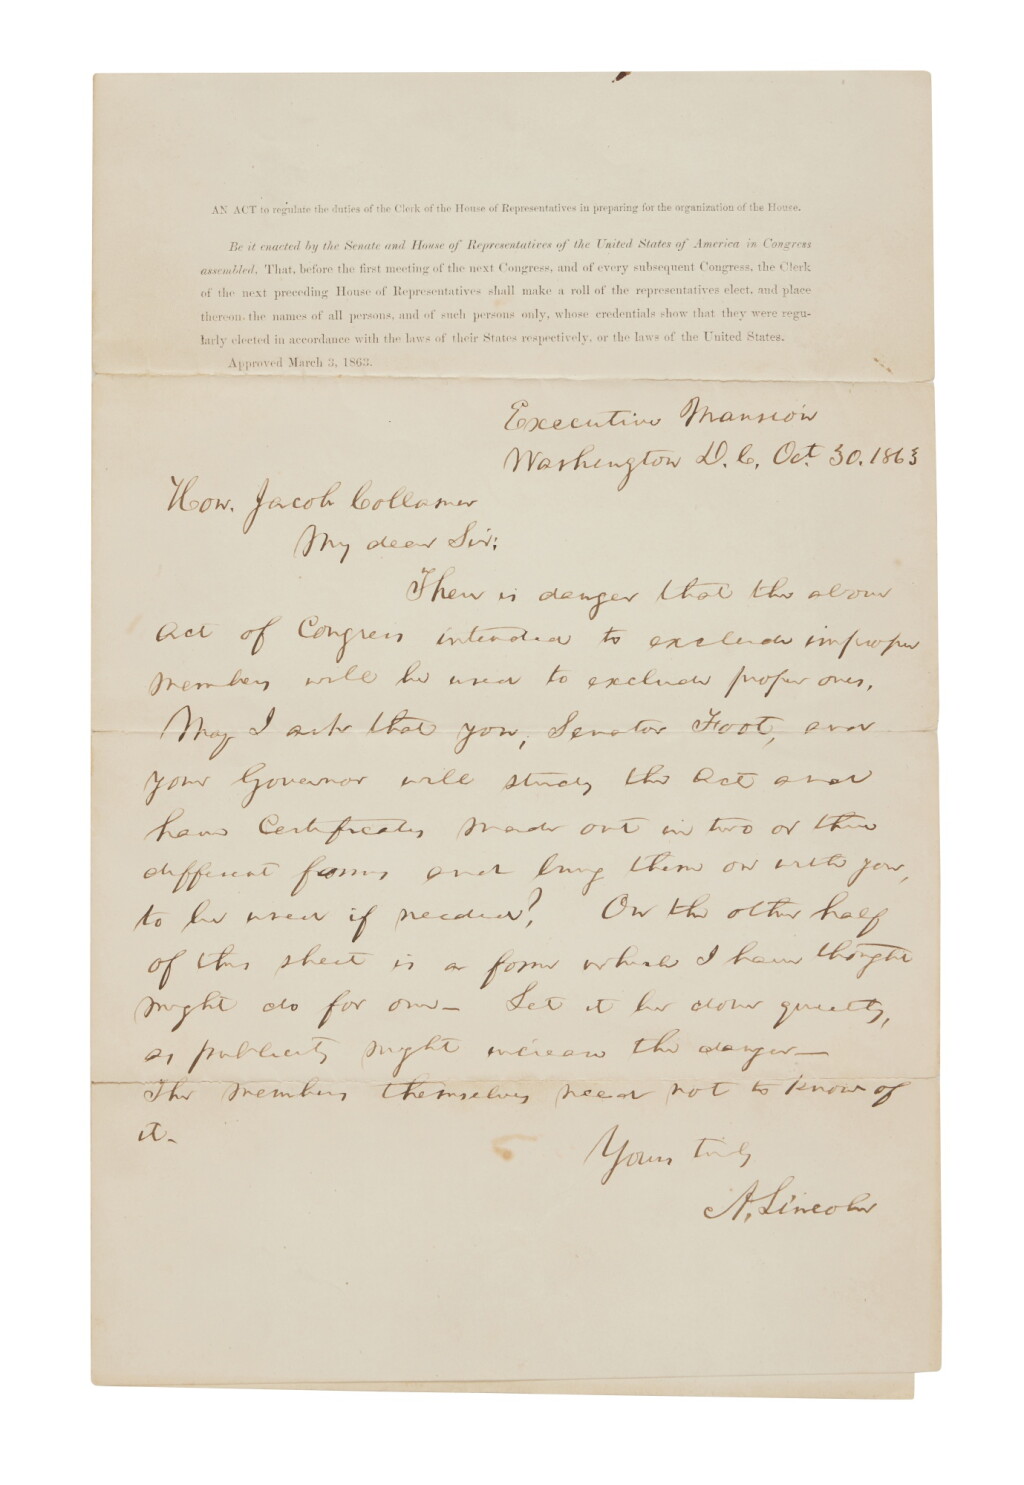 AN ACT to regulate the duties of the Clerk of the House of Representatives in preparing for the organization of the House.
Be it enacted by the Senate and House of Representatives of the United States of America in Congress
assembled. That, before the first meeting of the next Congress, and of every subsequent Congress, the Clerk
of the next preceding House of Representatives shall make a roll of the representatives elect, and place
thereon, the names of all persons, and of such persons only, whose credentials show that they were regu-
larly elected in accordance with the laws of their States respectively, or the laws of the United States.
Approved March 3, 1863.
Executive Mansion
Washington D.C, Oct. 30. 1863
Hon. Jacob Collamer
My dear Sir;
There is danger that the above
Act of Congress intended to exclude improper
members will be used to exclude proper ones.
May I ask that you, Senator Foot, and
your Governor will study the Act and
have Certificates made out in two or three
different forms and bring them on with you,
to be used if needed? On the other half
of this sheet is a form which I have thought
might do for one— Let it be done quietly,
as publicity might increase the danger—
The members themselves need not to know of
it—
Yours truly
A. Lincoln